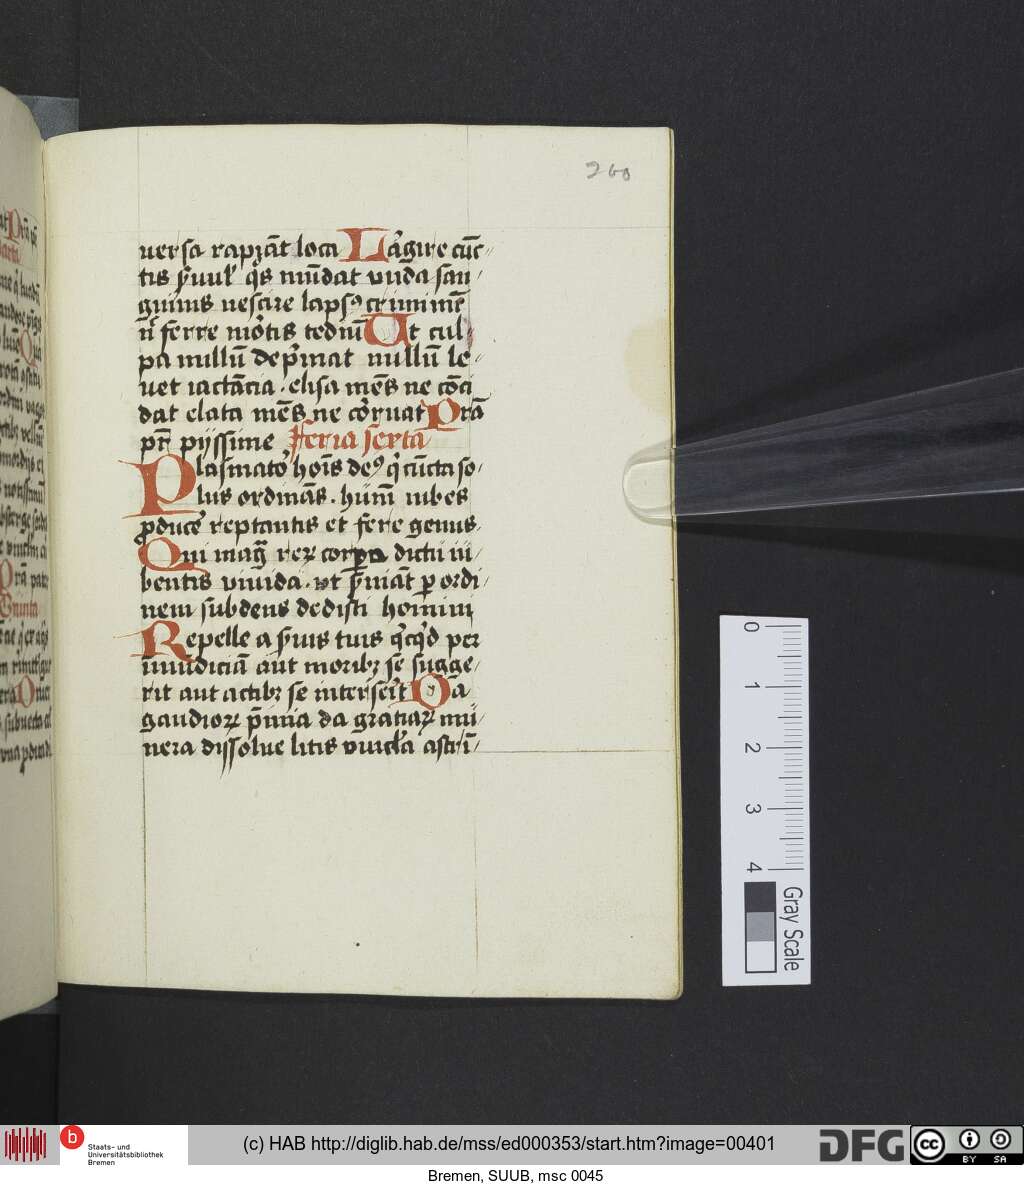 260
uersa rapiāt loca Largire cūc
tis s̄uul' q̄s mūdat vnda san
guinis nescire lapsꝰ criminū
n̄ ferre mortis tediū Ut cul
pa nullū dep̄mat nullū le
uet iactācia . elisa mēs ne cōci
dat elata mēs ne corruat Prā
pr̄ pijssime Feria sexta
Plasmator hoīs deꝰ q̄ cūcta so
lus ordinās . humū iubes
ꝓducē reptantis et fere genus
Qui magͣ reꝝ corpora dictu iu
bentis viuida . vt s̄uiāt ꝑ ordi
nem subdens dedisti homini
Repelle a s̄uis tuis q̄cq̄d per
inmūdiciā aut moribꝫ se sugge
rit aut actibꝫ se interserit Da
gaudioꝝ p̄mia da gratiaꝝ mu
nera dissolue litis vincla astrī
0 1 2 3 4
Gray Scale
b Staats- und
Universitätsbibliothek
Bremen
(c) HAB http://diglib.hab.de/mss/ed000353/start.htm?image=00401
DFG
cc BY SA
Bremen, SUUB, msc 0045